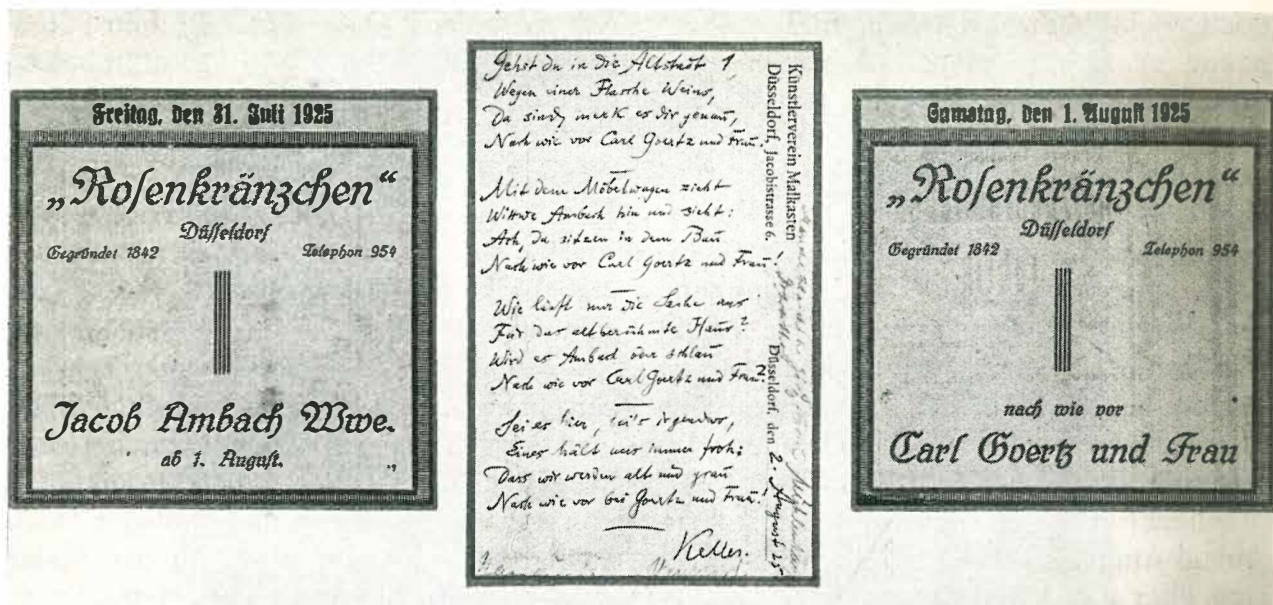 Freitag, den 31. Juli 1925
„Rosenkränzchen“
Düsseldorf
Gegründet 1842
Telephon 954
Jacob Ambach Wwe.
ab 1. August.
Gehst du in die Altstadt 1,
Wegen einer Flasche Weins,
Da sind, merk es dir genau,
Nach wie vor Carl Goertz und Frau.
Mit dem Möbelwagen zieht
Wittwe Ambach hin und sieht:
Ach, da sitzen in dem Bau
Nach wie vor Carl Goertz und Frau!
Wie läuft nur die Sache aus
Für das altberühmte Haus?
Wird es Ambach oder schlau
Nach wie vor Carl Goertz und Frau?
Sei es hier, sei's irgendwo,
Eines hält uns immer froh:
Dass wir werden alt und grau
Nach wie vor bei Goertz und Frau!
Keller.
Künstlerverein Malkasten
Düsseldorf, Jacobistrasse 6.
Düsseldorf, den 2. August 25
Samstag, den 1. August 1925
„Rosenkränzchen“
Düsseldorf
Gegründet 1842
Telephon 954
nach wie vor
Carl Goertz und Frau